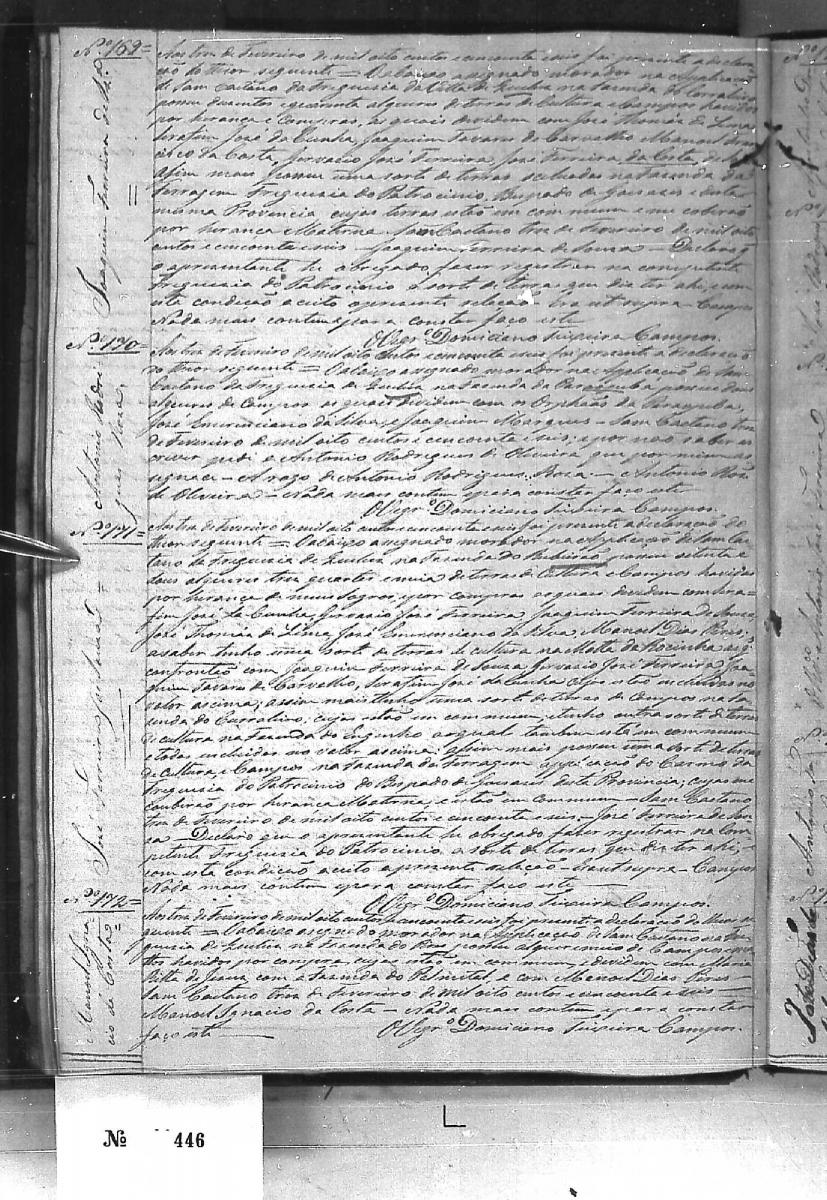 Nº 169=
Joaquim Ferreira de Sza.
Aos tres de Fevereiro de mil oito centos e cincoenta e seis foi presente a declara
ção do theor seguinte = O abaixo assignado morador na Applicação
de Sam Caetano da Freguesia da Villa de na fasenda do Corralinho
possue duzentos e quarenta alqueires de terras de Cultura e Campos havidos
por herança e Compras, as quais dividem com José Thomás de Lima
Serafim José da Cunha, Joaquim Tavares de Carvalho Manoel Fran
cisco da Costa, Gervasio José Ferreira José Ferreira da Costa
assim mais possue uma sorte de terras seituadas na fasenda da
Ferragem Freguesia do Patrocinio, Bispado de Goiases e desta
mesma Provincia cujas terras estão em commum e me coberão
por herança Materna Sam Caetano tres de Fevereiro de mil oito
centos e cincoenta e seis — Joaquim Ferreira de Souza — Declaro q
o apresentante he obrigado faser registrar na competente
Freguesia do Patrocinio a sorte de terras que diz ter ahi, e com
esta condição aceito a presente relação — Era ut supra — Campos
Nada mais contem e para constar faço este
O Vigrº Domiciano Teixeira Campos.
Nº 170=
Antonio Rodri
gues Rosa,
Aos tres de Fevereiro de mil oito centos e cincoenta e seis foi presente a declaração
do theor seguinte = O abaixo assignado morador na Applicação de Sam
Caetano da Freguesia de na fasenda da Parahyba possue dous
alqueires de Campos as quais dividem com os Orphãos da Parahyba,
José Emerenciano da Silva, e Joaquim Marques — Sam Caetano tres
de Fevereiro de mil oito centos e cincoenta e seis, e por não saber es
crever pedi a Antonio Rodrigues de Oliveira que por mim as
signace — A rogo de Antonio Rodrigues Rosa — Antonio Roiz
de Oliveira — Nada mais contem e para constar faço este
O Vigrº Domiciano Teixeira Campos.
Nº 171=
José Ferreira de Souza =
Aos tres de Fevereiro de mil oito centos e cincoenta e seis foi presente a declaração do
theor seguinte = O abaixo assignado morador na Applicação de Sam Cae
tano da Freguesia de na Fasenda do Ribeirão, possue setenta e
dous alqueires tres quartos e meia de terras de Cultura e Campos havidas
por herança de meus sogros, e por compras as quais dividem com Sera=
fim José da Cunha, Gervasio José Ferreira Joaquim Ferreira de Souza,
José Thomás de Lima, José Emerenciano da Silva, Manoel Dias Peres;
a saber tenho uma sorte de terras de cultura na Matta da Rocinha
confrontão com Joaquim Ferreira de Souza Gervasio José Ferreira Joa
quim Tavares de Carvalho, Serafim José da Cunha e estão incluidas no
valor ascima; assim mais tenho uma sorte de terras de Campos na fa
senda do Corralinho, cujas estão em commum e tenho outra sorte de terras
de cultura na fasenda do Engenho a qual tambem está em commum
e todas incluidas no valor ascima; assim mais possuo uma sorte de terras
de Cultura e Campos na fasenda da Ferragem applicação do Carmo da
Freguesia do Patrocinio do Bispado de Goiases desta Provincia; cujas me
couberão por herança Materna, e estão em commum — Sam Caetano
tres de Fevereiro de mil oito centos e cincoenta e seis — José Ferreira de Sou
za — Declaro que o apresentante he obrigado faser registrar na Com
petente Freguesia do Patrocinio a sorte de terras que diz ter ahi,
com esta condição aceito a presente relação — Era ut supra — Campos
Nada mais contem e para constar faço este
O Vigrº Domiciano Teixeira Campos.
Nº 172=
Manoel Igna
cio da Costa =
Aos tres de Fevereiro de mil oito centos e cincoenta e seis foi presente a declaração do theor se
guinte = O abaixo assignado morador na Applicação de Sam Caetano da Fre
guesia de na fasenda do possue alqueire e meio de Campos
havidos por compra, cujas está em commum e dividem com Maria
Ritta de Jesus, com a fasenda do Palmital e com Manoel Dias Peres —
Sam Caetano tres de Fevereiro de mil oito centos e cincoenta e seis —
Manoel Ignacio da Costa — Nada mais contem e para constar
faço este
O Vigrº Domiciano Teixeira Campos.
Nº 446